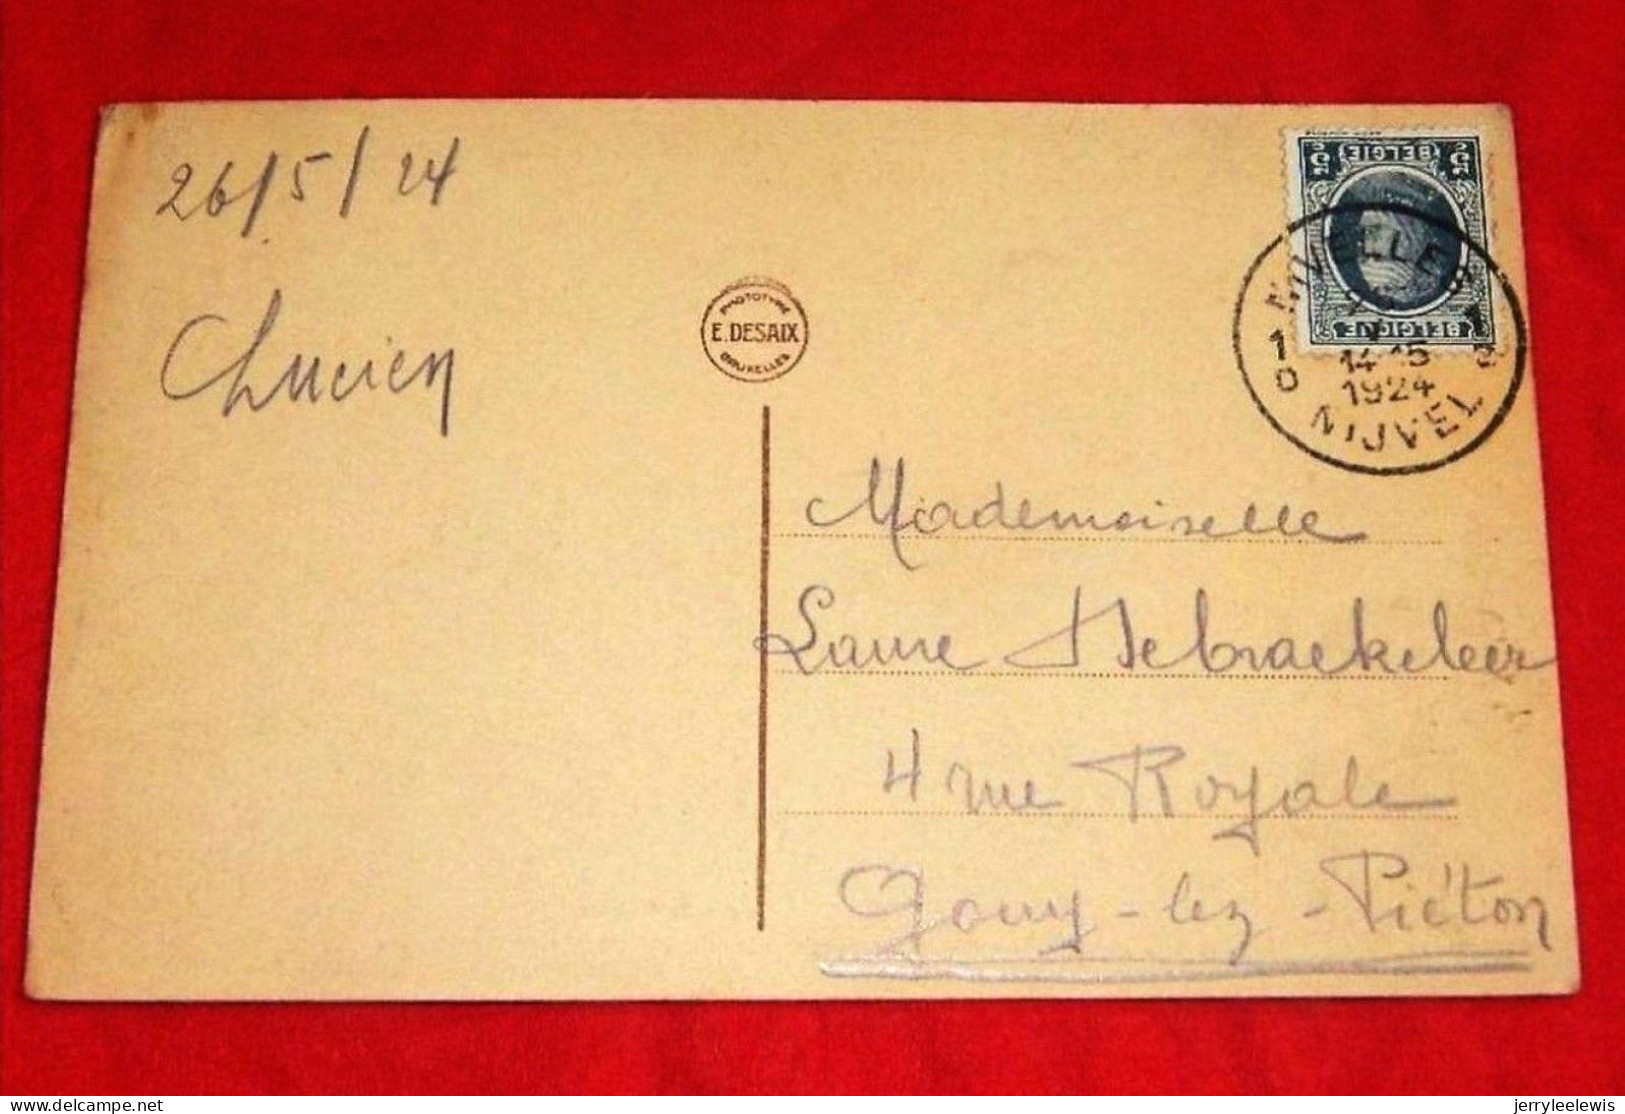 26/5/24
Lucien
PHOTOTYPIE
E. DESAIX
BRUXELLES
5c BELGIË 5c
BELGIQUE
NIVELLES
1 1
14-15
1924
NIJVEL
Mademoiselle
Laure Debraekeleer
4 rue Royale
Gouy-lez-Piéton
delcampe.net
jerryleelewis